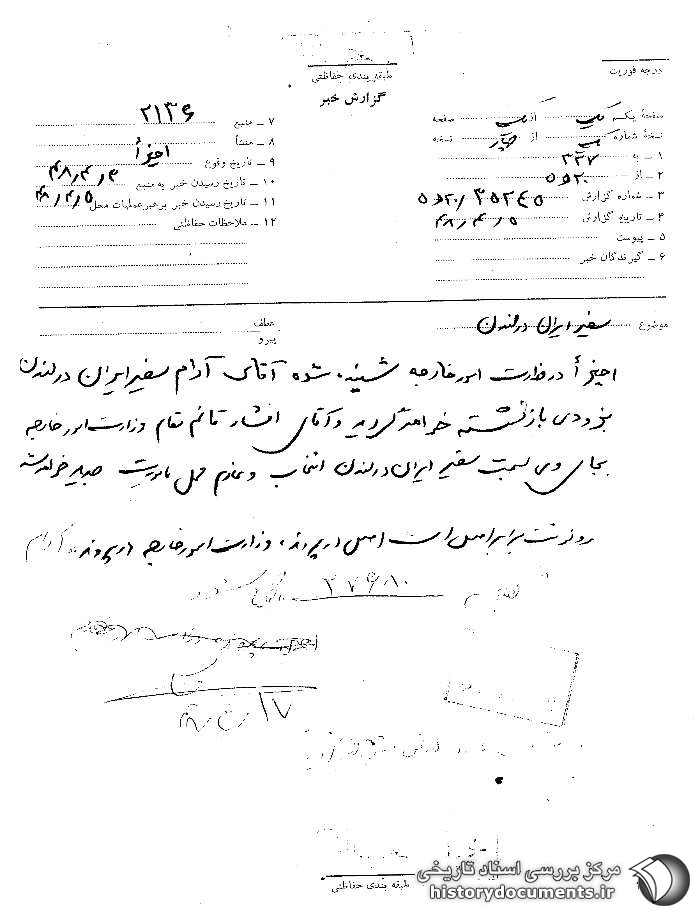 طبقه بندی حفاظتی
گزارش خبر
درجه فوریت
صفحهٔ یک از یک صفحه
نسخهٔ شماره از چهار نسخه
۱ - به ۳۳۷
۲ - از ۲۰ ه ۵
۳ - شماره گزارش ۳۵۲۴۵ / ۲۰ ه ۵
۴ - تاریخ گزارش ۴۸/۴/۵
۵ - پیوست
۶ - گیرندگان خبر
۷ - منبع ۲۱۳۶
۸ - منشأ
۹ - تاریخ وقوع اخیراً
۱۰ - تاریخ رسیدن خبر به منبع ۴۸/۴/۳
۱۱ - تاریخ رسیدن خبر برهبر عملیات محل ۴۸/۴/۵
۱۲ - ملاحظات حفاظتی
موضوع سفیر ایران در لندن
عطف
پیرو
اخیراً در وزارت امور خارجه شنیده شده آقای آرام سفیر ایران در لندن
بزودی بازنشسته خواهد گردید و آقای افشار قائم مقام وزارت امور خارجه
بجای وی بسمت سفیر ایران در لندن انتخاب و عازم محل مأموریت جدید خواهد شد
رونوشت برابر اصل است اصل در پرونده وزارت امور خارجه در پرونده آرام
۳۷۶۸۰
۱۷
طبقه بندی حفاظتی
مرکز بررسی اسناد تاریخی
historydocuments.ir